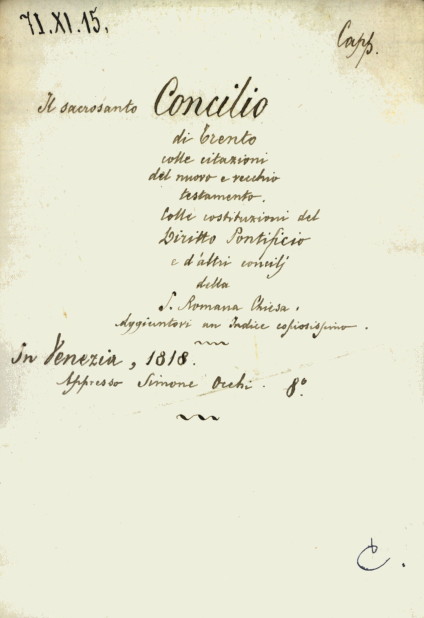 71.XI.15.
Capp.
Il sacrosanto Concilio
di Trento
colle citazioni
del nuovo e vecchio
testamento.
Colle costituzioni del
Diritto Pontificio
e d'altri concilj
della
S. Romana Chiesa.
Aggiuntovi un Indice copiosissimo.
In Venezia, 1818.
Appresso Simone Occhi. 8°